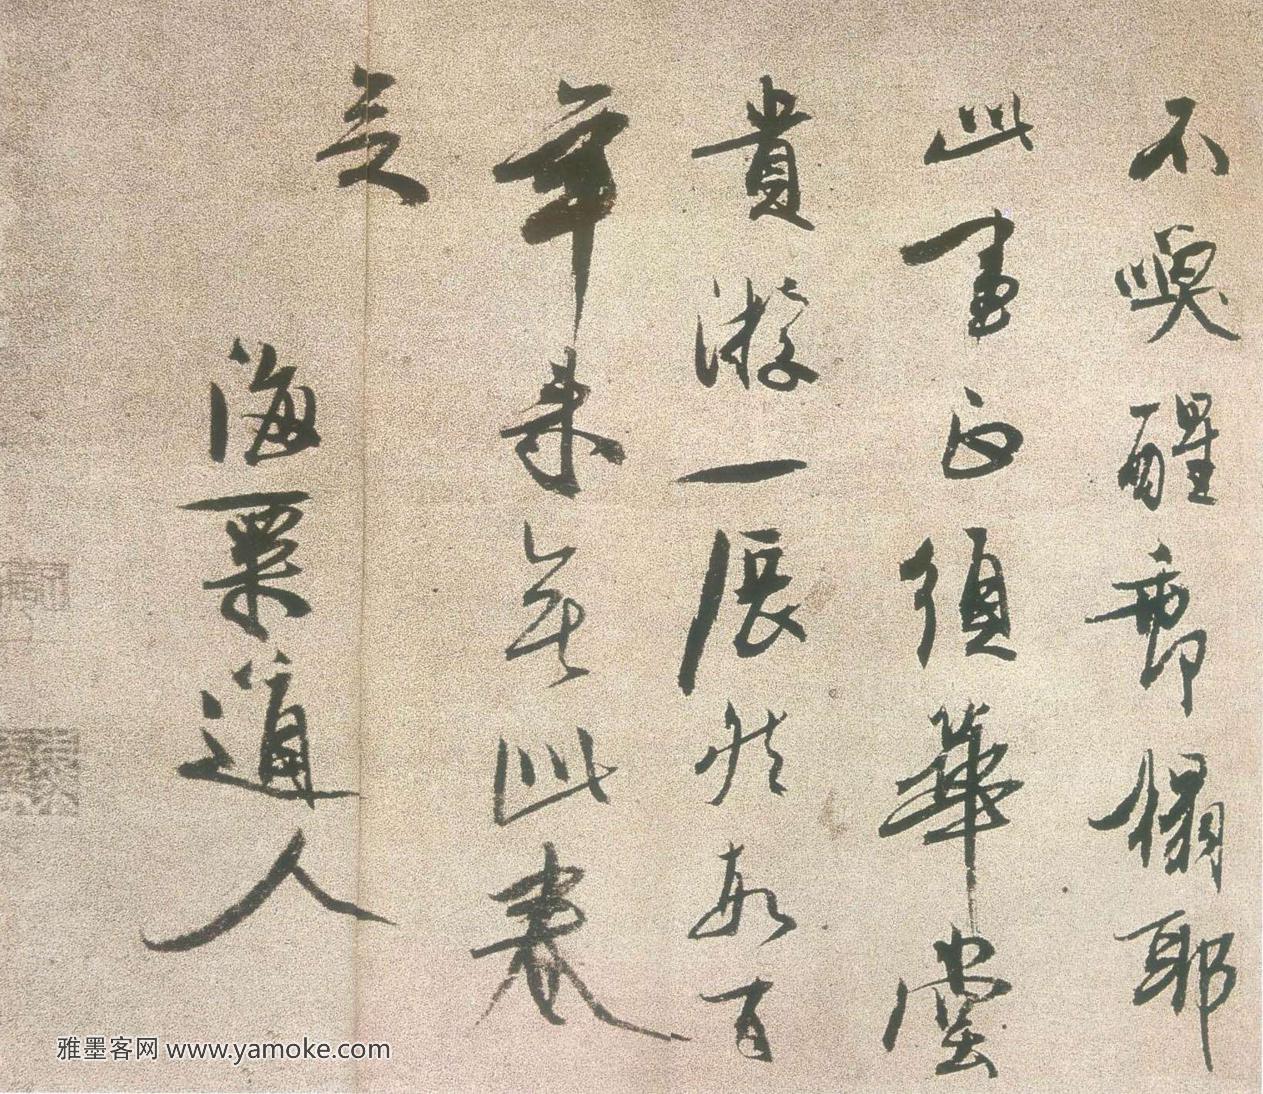 不喚醒郵榻耶
此事正須華堂
貴游一展然數百
年来無此卷
矣
海粟道人
雅墨客网 www.yamoke.com